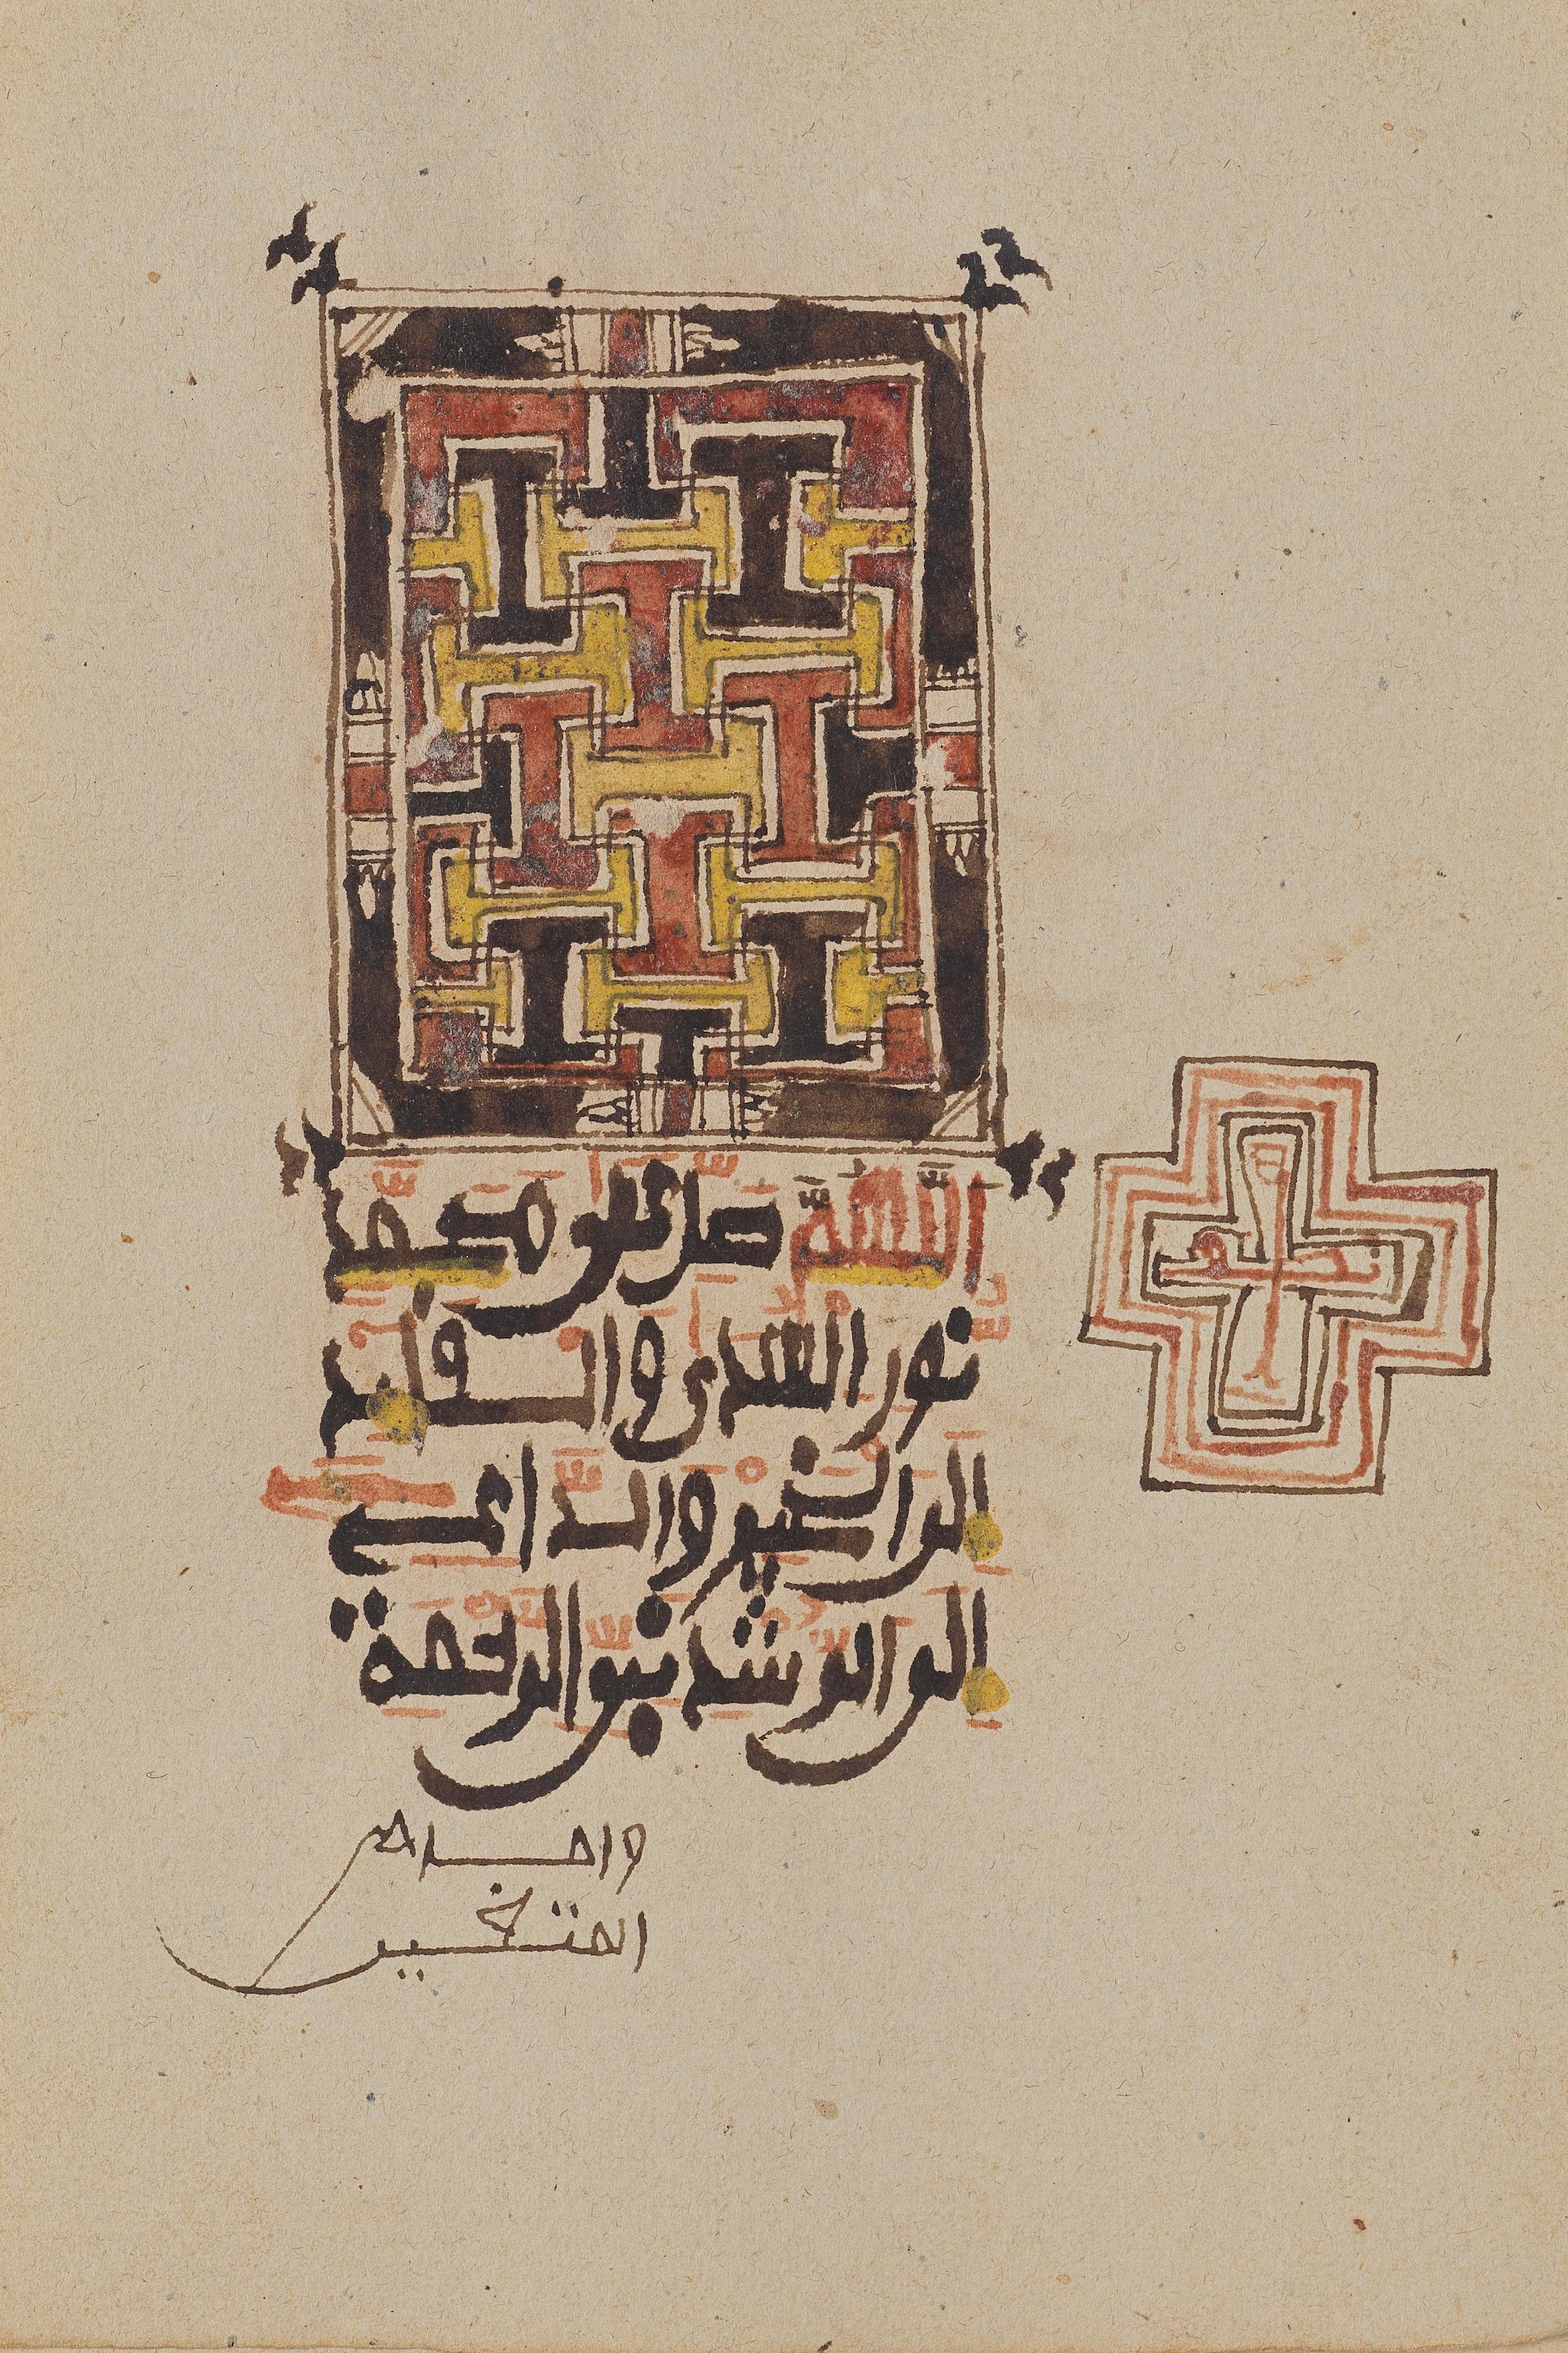 اللَّهُمَّ صل على محمد
نور الهدى والقايد
الى الخير والداعى
الى الرشد نبى الرحمة
وامام
المتقين